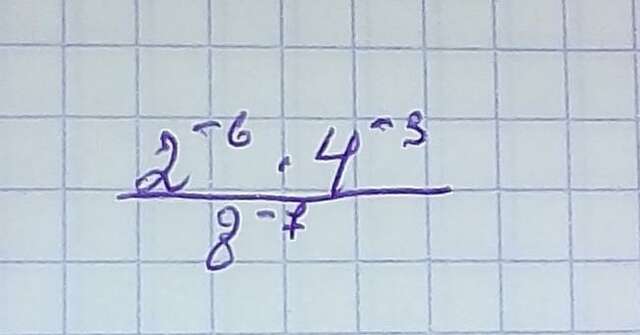 2⁻⁶ · 4⁻³
8⁻⁷